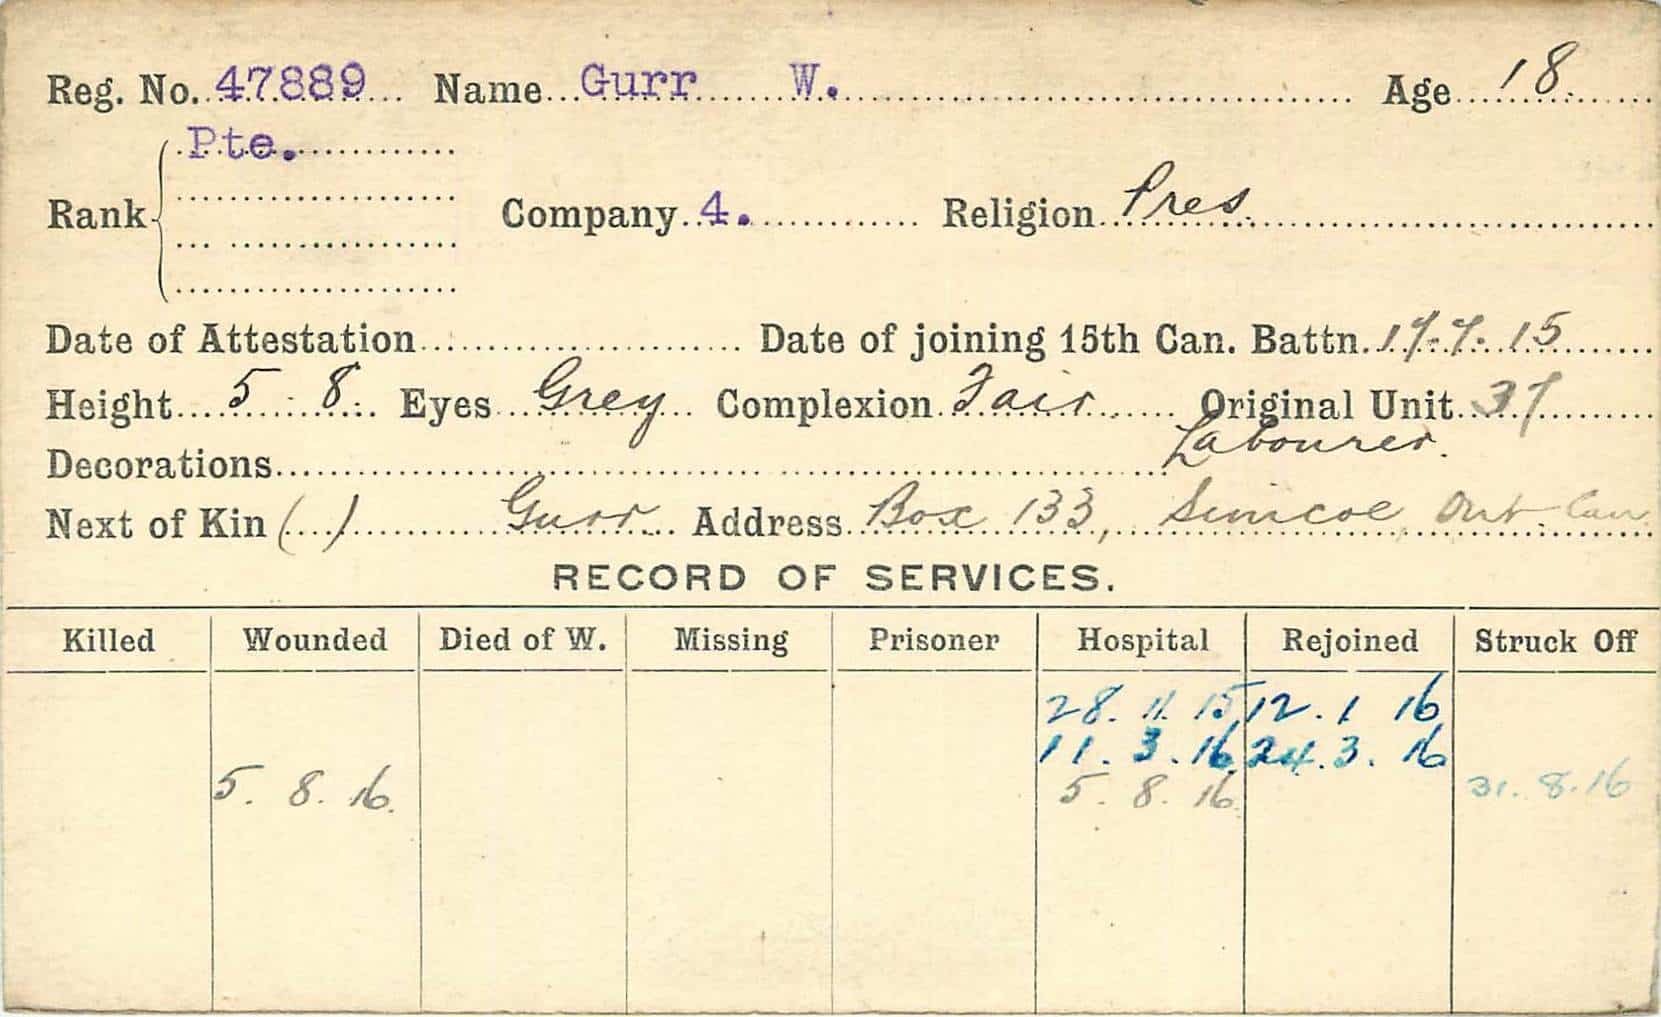 Reg. No. 47889 Name Gurr W. Age 18
Pte.
Rank Company 4. Religion Pres.
Date of Attestation Date of joining 15th Can. Battn. 17.7.15
Height 5 8 Eyes Grey Complexion Fair Original Unit 37
Labourer.
Decorations
Next of Kin ( ) Gurr Address Box 133, Simcoe Ont. Can.
RECORD OF SERVICES.
Killed Wounded Died of W. Missing Prisoner Hospital Rejoined Struck Off
28. 11. 15 12. 1 16
11. 3. 16 24. 3. 16
5. 8. 16. 5. 8. 16 31. 8. 16